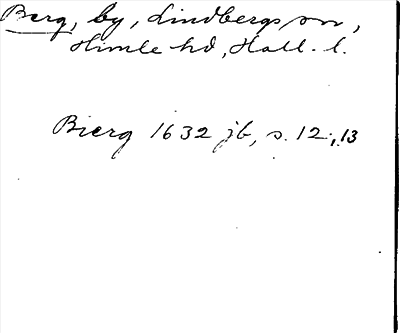 Berg, by, Lindbergs sn,
Himle hd, Hall. l.
Bierg 1632 jb, s. 12, 13